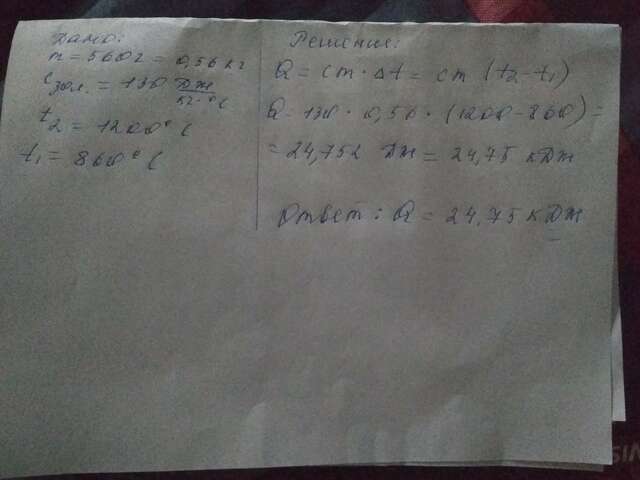 Дано:
m = 560 г = 0,56 кг
c зол. = 130 Дж/кг·°C
t2 = 1200°C
t1 = 860°C
Решение:
Q = cm·Δt = cm (t2-t1)
Q = 130 · 0,56 · (1200 - 860) =
= 24,752 Дж = 24,75 кДж
Ответ: Q = 24,75 кДж
SIN